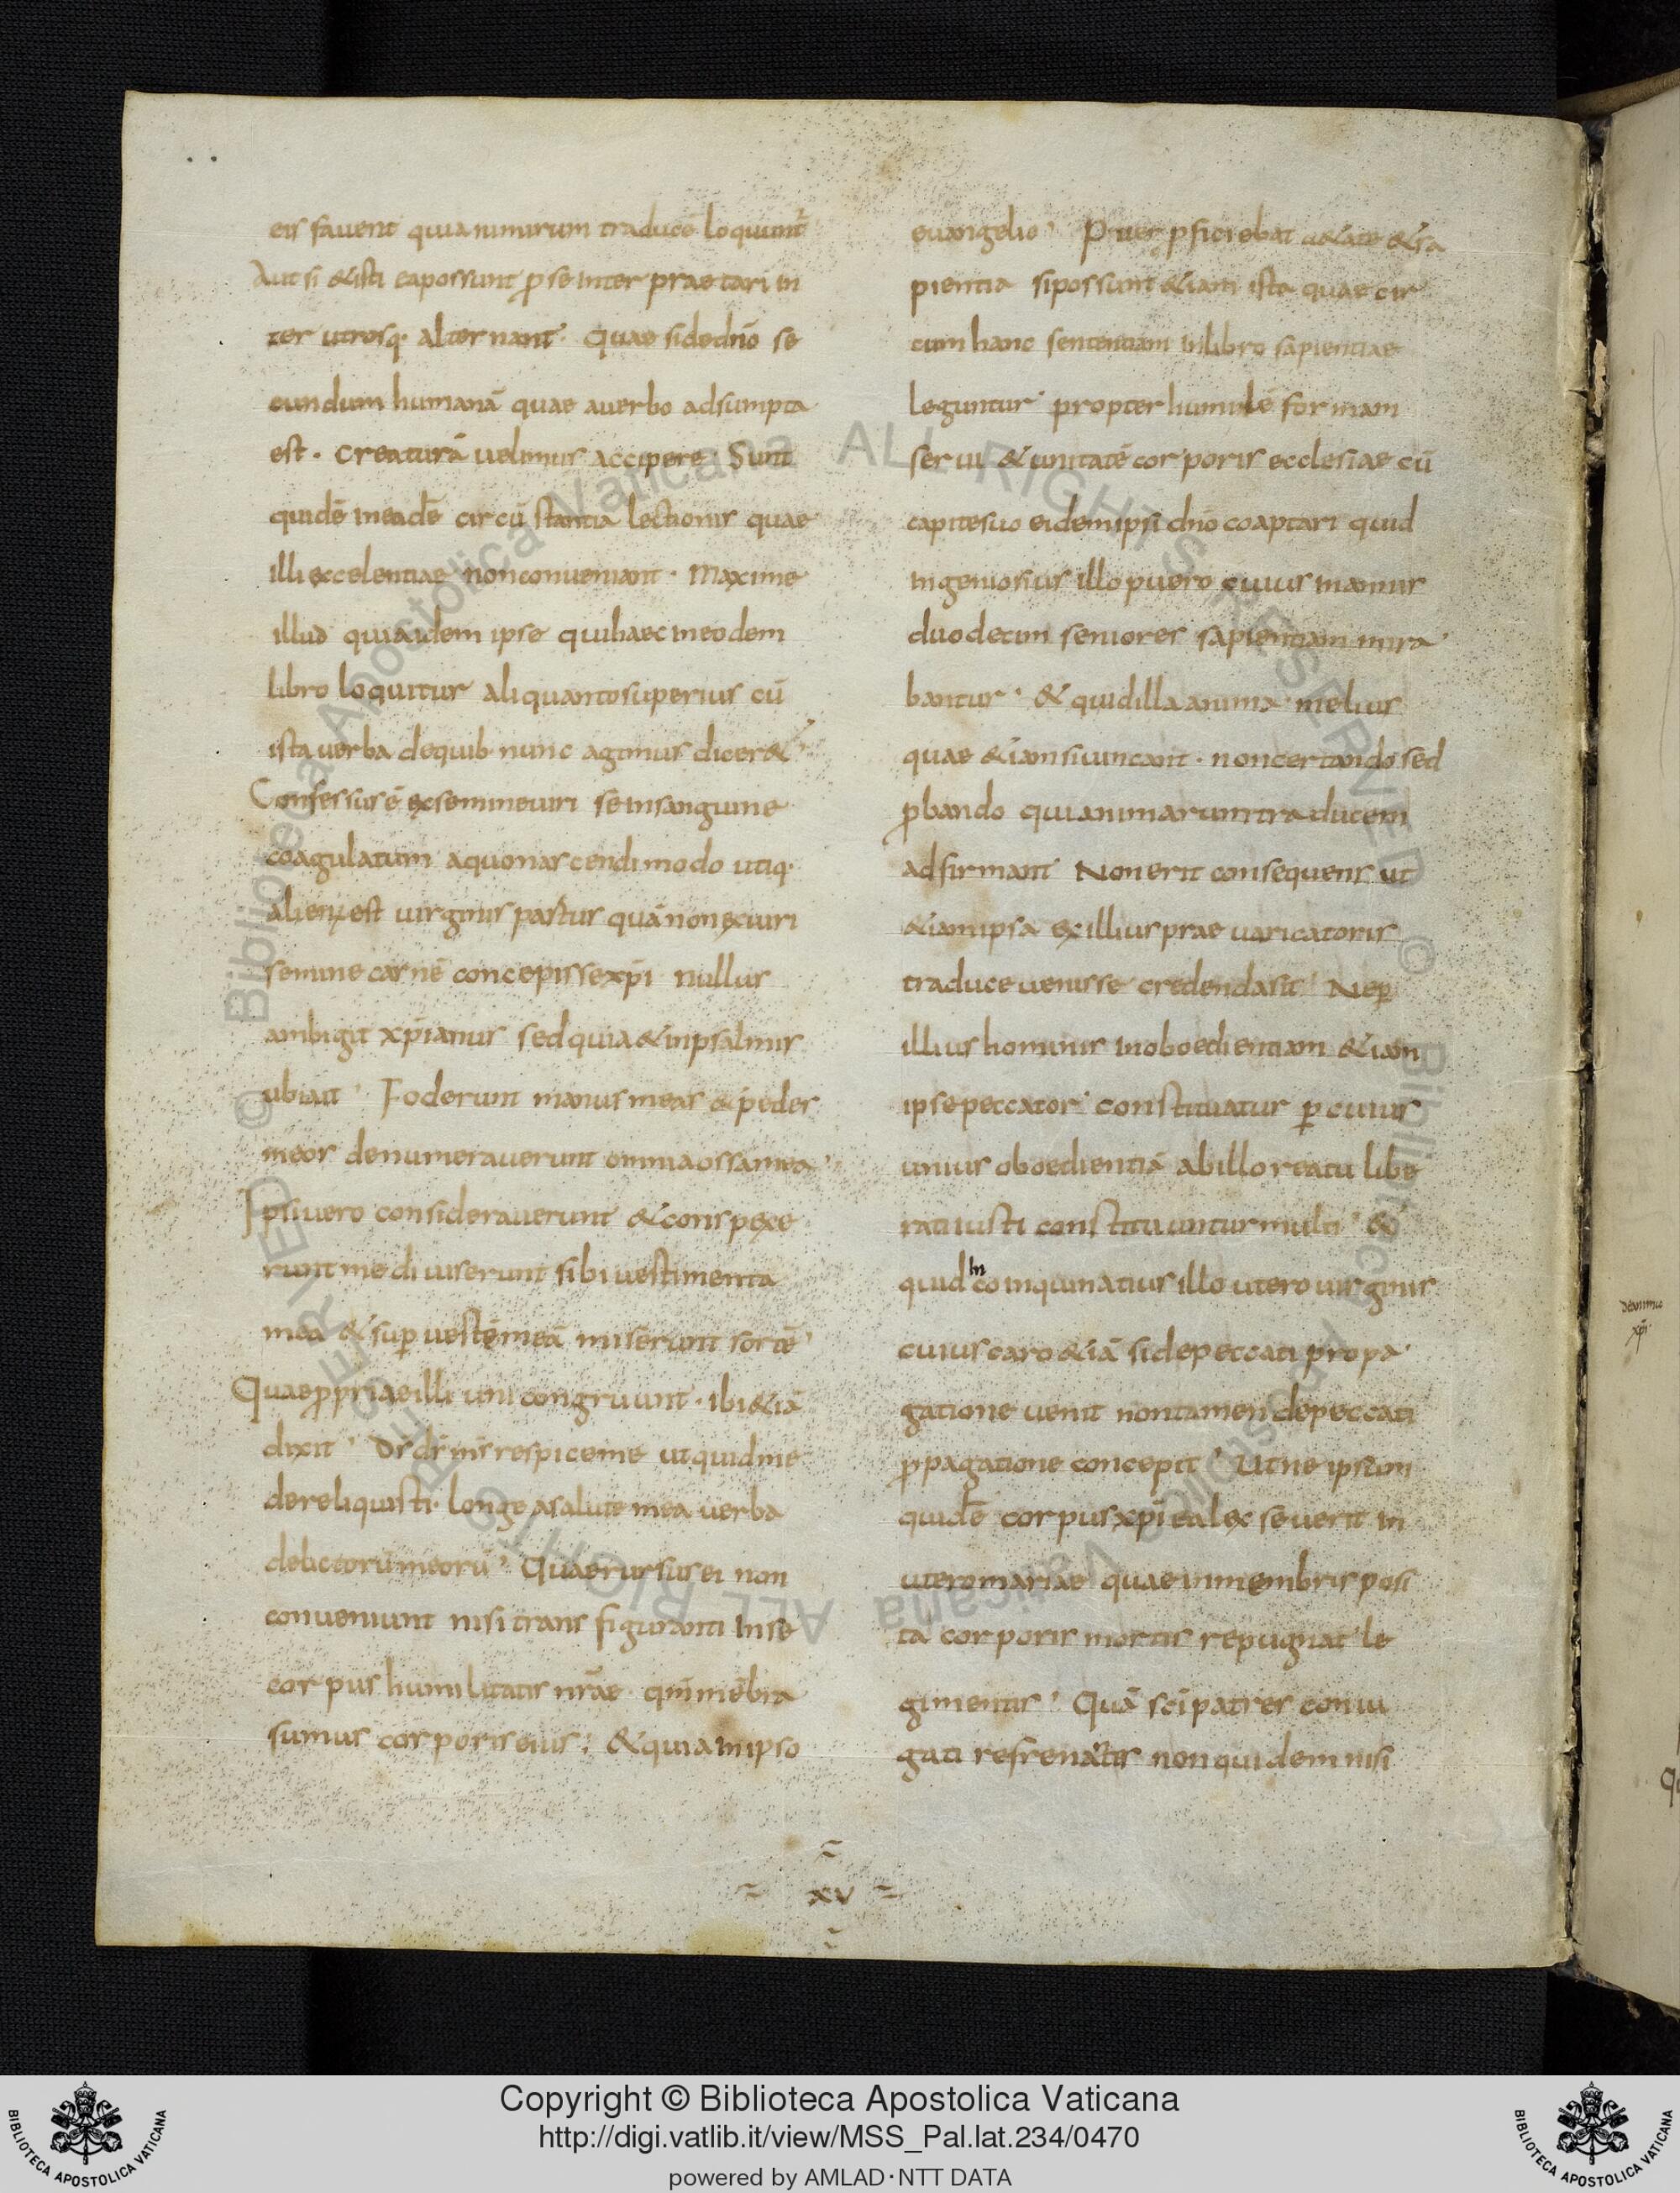 eis favent quia nimirum traducē loquunt᷑
Aut si &isti eapossunt ꝓse inter praetari in
ter utrosq· alternant· Quae sidedn̄o se
cundum humanā quae averbo adsumpta
est· creaturā velimus accipere· Sunt
quidē ineadē circū stantia lectionis quae
illi excelentiae nonconveniant· Maxime
illud quiaidem ipse quihaec ineodem
libro loquitur aliquantosuperius cū
ista verba dequib· nunc agimus dicer&'
Confessus ē exsemineviri seinsanguine
coagulatum aquonascendimodo utiq·
alienē est virginis partus quānonexviri
semine carnē concepissexp̄i nullus
ambigit xp̄ianus sed quia &inpsalmis
ubiait' Foderunt manusmeas &pedes
meos denumeraverunt omniaossamea'
Ipsivero consideraverunt &conspexe
runtme diviserunt sibivestimenta
mea &suꝑ vestēmeā miserunt sortē'
Quaeꝓpriaeilli uni congruunt· ibi&iā
dixit' Ds̄ ds̄ ms̄ respiceme utquidme
dereliquisti· longe asalute mea verba
delictorūmeorū' Quaerursus ei non
conveniunt nisi trans figuranti inse
corpus humilitatis nr̄ae· qm̄ mēbra
sumus corporiseius; &quiainipso
evangelio' Puer ꝓficiebat a&ate &sa
pientia sipossunt &iam ista quae cir
cum hanc sententiam inlibro sapientiae
leguntur' propter humilē formam
servi &unitatē corporis ecclesiae cū
capitesuo eidemipsi dn̄o coaptari quid
ingeniosius illo puero cuius inannis
duodecim seniores sapientiam mira
bantur' & quidilla anima· melius
quae &iamsivincant· noncertando sed
ꝓbando quianimarumtraducem
adfirmant Nonerit consequens ut
&iamipsa exillius praevaricatoris
traduce venisse credendasit' Neꝑ
illius hominis inoboedientiam &iam
ipsepeccator' constituatur ꝑ cuius
unius oboedientiā abillo reatu libe
rati iusti constituunturmulti' &
quid incoinquinatius illo utero virginis
cuius caro &iā sidepeccati propa
gatione venit nontamen depeccati
ꝓpagatione concepit' Utne ipsum
quidē corpusxp̄i ealex severit in
uteromariae quae inmembris posi
ta corporis mortis repugnat le
gimentis' Quā sc̄ipatres coniu
gati refrenātes nonquidem nisi
xv
deanima
xp̄i·
Copyright © Biblioteca Apostolica Vaticana
http://digi.vatlib.it/view/MSS_Pal.lat.234/0470
powered by AMLAD·NTT DATA
BIBLIOTECA APOSTOLICA VATICANA
BIBLIOTECA APOSTOLICA VATICANA
© Biblioteca Apostolica Vaticana ALL RIGHTS RESERVED
© Biblioteca Apostolica Vaticana ALL RIGHTS RESERVED